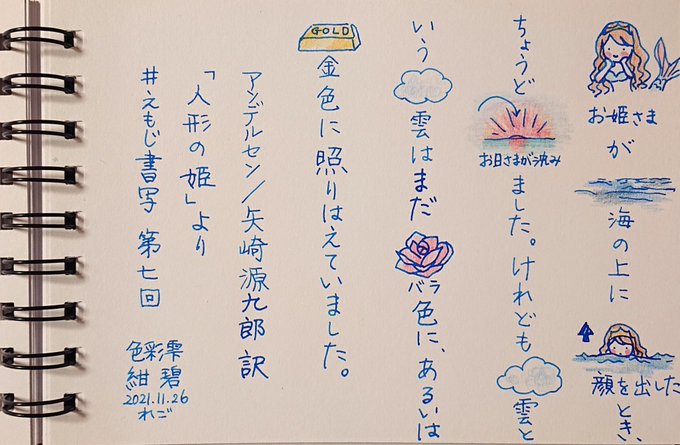 お姫さまが海の上に顔を出したとき、
ちょうどお日さまが沈みました。けれども雲と
いう雲はまだバラ色に、あるいは
GOLD
金色に照りはえていました。
アンデルセン/矢崎源九郎 訳
「人形の姫」より
#えもじ書写 第七回
色彩雫
紺碧
2021.11.26
れご